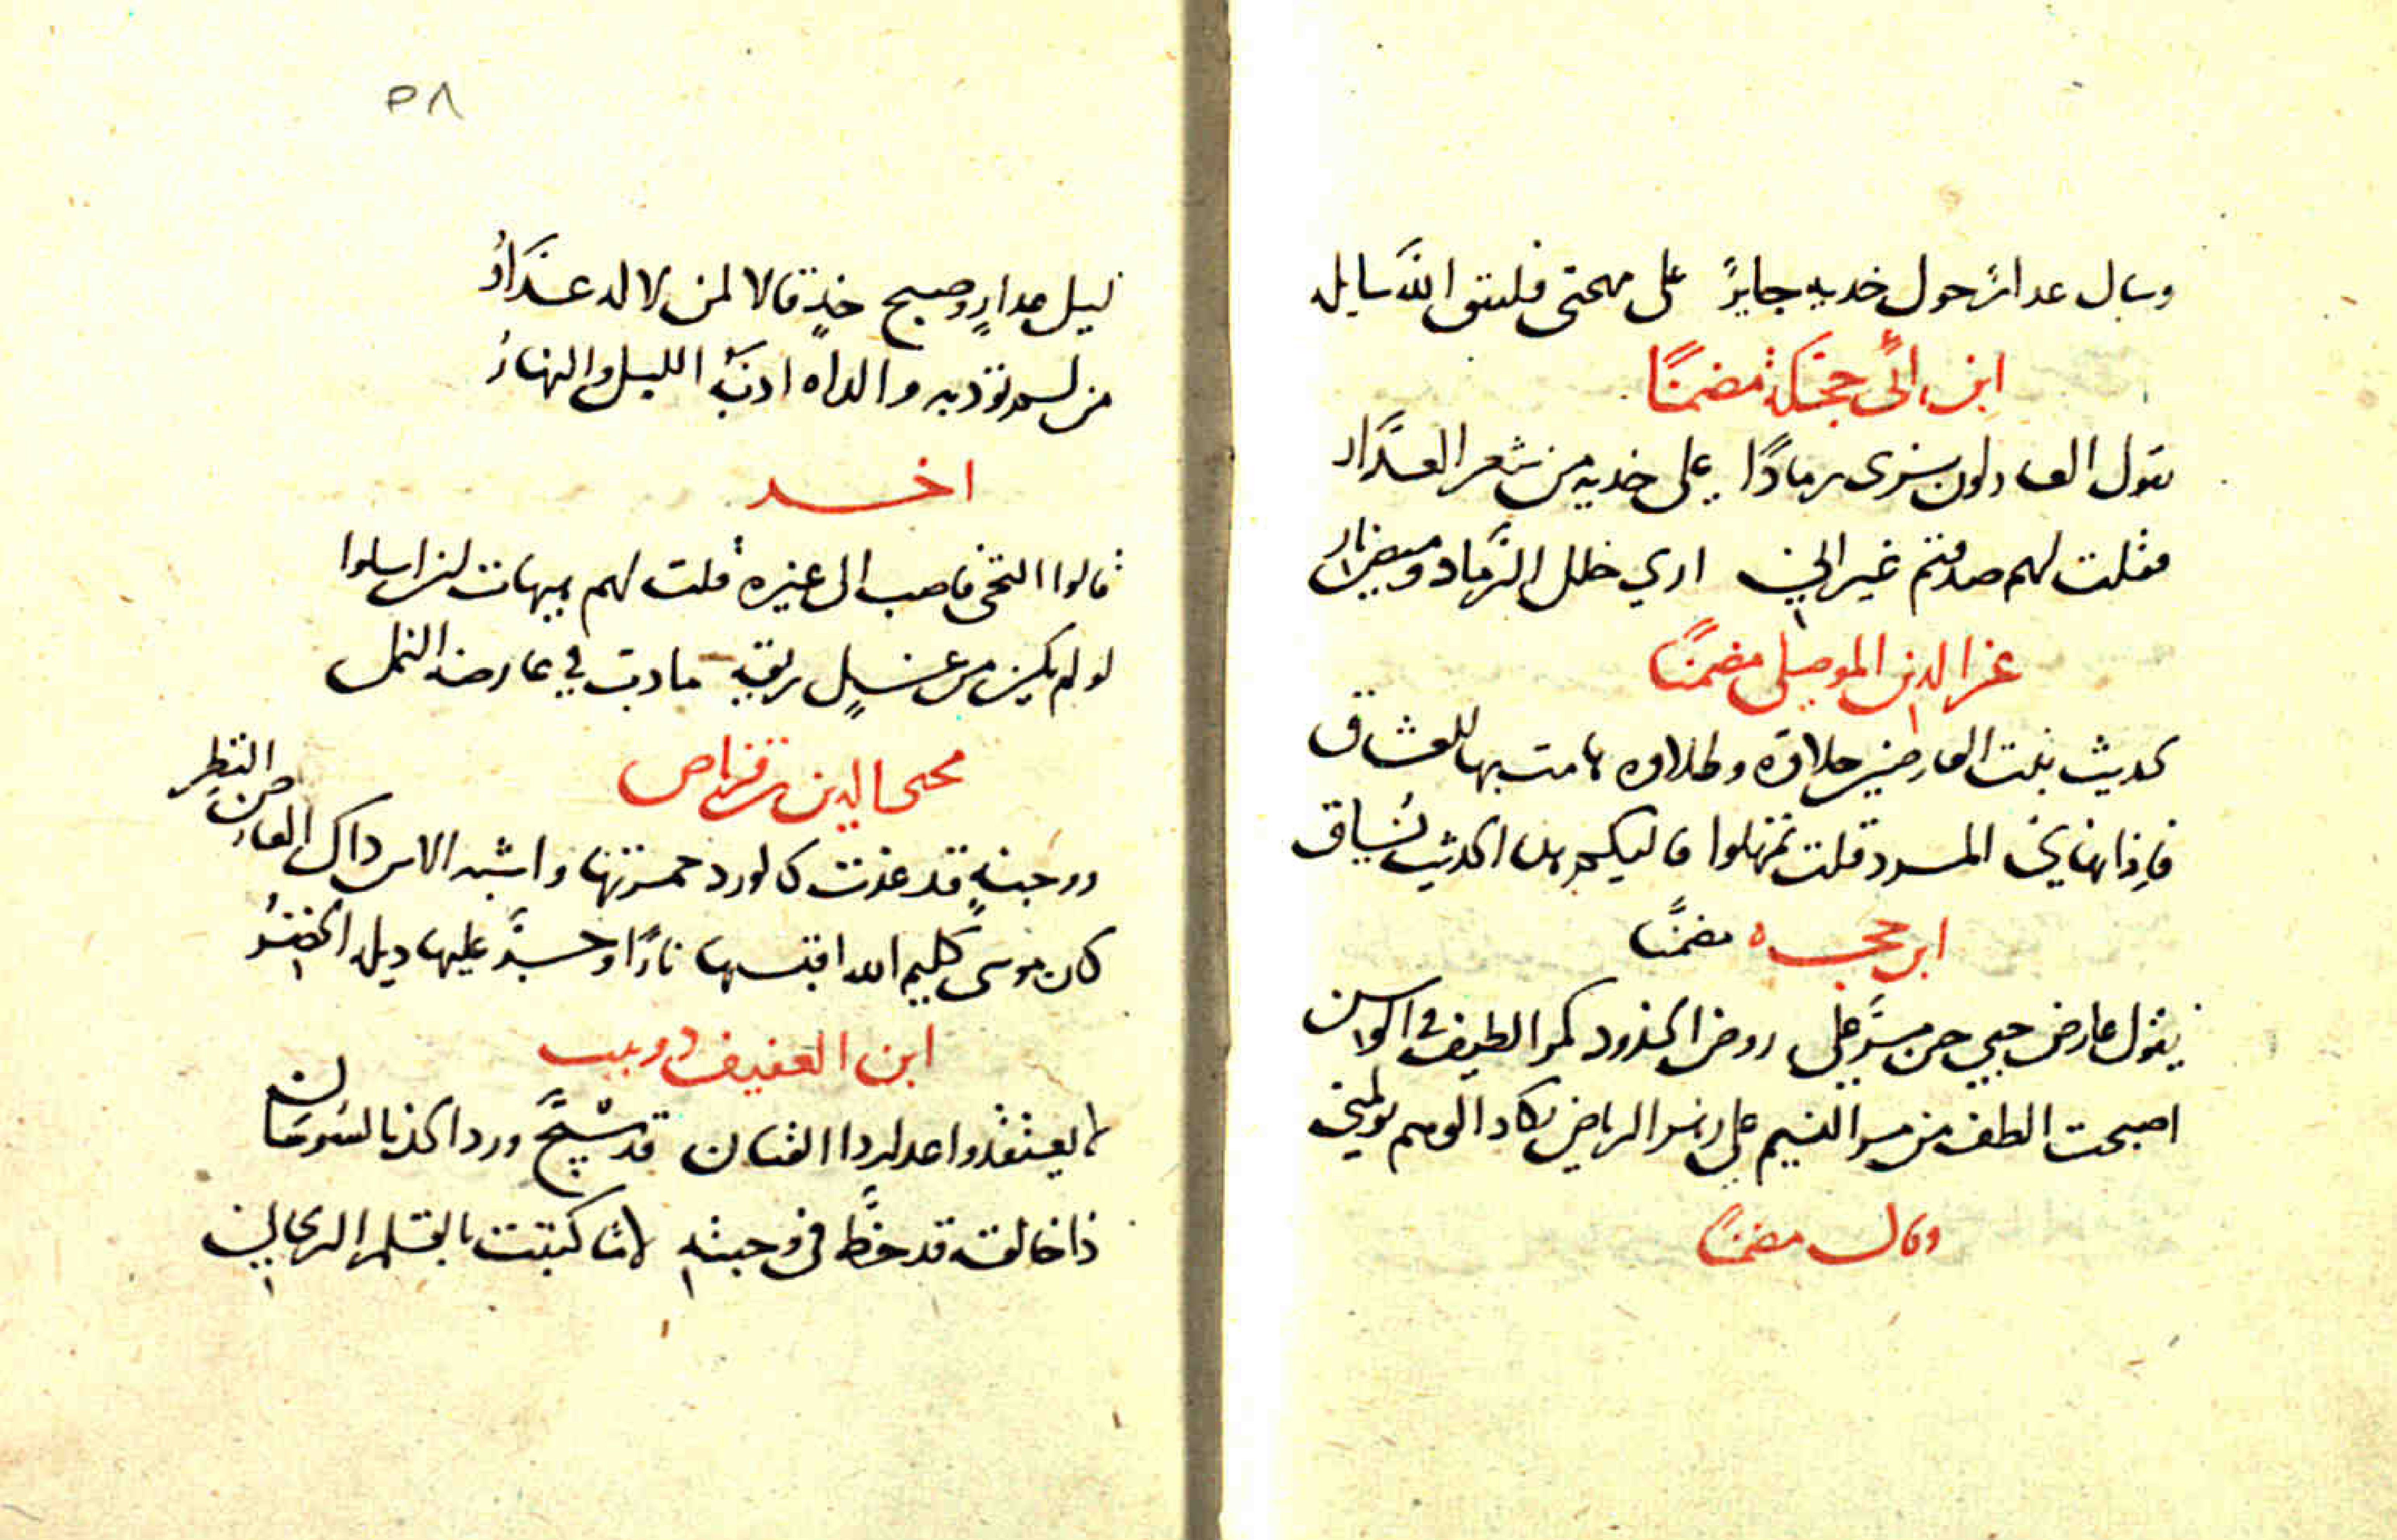 وسال عذار حول خديه جاير على مهجتي فليتق الله سايله
ابن ابي حجلة مضمنًا
يقول العاذلون نرى رمادًا على خديه من شعر العذار
فقلت لهم صدقتم غير اني ارى خلل الرماد وميض نار
عز الدين الموصلي مضمنًا
لحديث نبت العارضين حلاوة وطلاوة هامت بها العشاق
فاذا نهاني المرد قلت تمهلوا فاليكم هذا الحديث يساق
ابن حجة مضمنًا
يقول عارض حبي حين مر على روض الخدود كمر الطيف في الوسن
اصبحت الطف من مر النسيم على زهر الرياض يكاد الوهم يولمني
وقال مضمنًا
٥٨
ليل عذار وصبح خد قالا لمن لا له عذار
من لم يؤدبه والداه ادبه الليل والنهار
اخر
قالوا التحى فاصب الى غيره قلت لهم هيهات لن اسلوا
لو لم يكن من عسل ريقه ما دب في عارضه النمل
محيي الدين بن قرناص
ووجنة قد غدت كالورد حمرتها واشبه الاس ذاك العارض النضر
كان موسى كليم الله اقتبسها نارًا وجر عليها ذيله الخضر
ابن العفيف دوبيت
قد سيج ورد الخد بالسوسان
ذا خالقه قد خط في وجنته كتبت بالقلم الريحاني